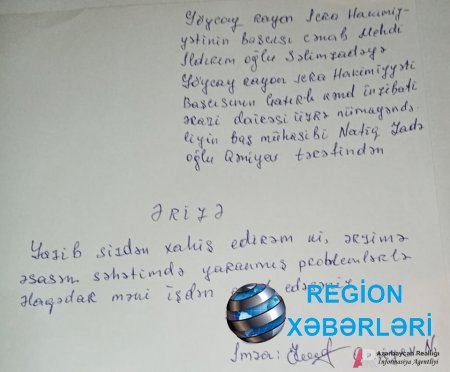 Göyçay rayon İcra Hakimiy-
yətinin başçısı cənab Mehdi
İldırım oğlu Səlimzadəyə
Göyçay rayon İcra Hakimiyyəti
Başçısının kənd inzibati
ərazi dairəsi üzrə nümayəndə-
liyin baş mühasibi Natiq
oğlu tərəfindən
ƏRİZƏ
Yazıb sizdən xahiş edirəm ki, ərizimə
əsasən səhətimdə yaranmış problemlərlə
əlaqədar məni işdən
REGİON
XƏBƏRLƏRİ
İmza:
Azərbaycan Reallığı
İnformasiya Agentliyi